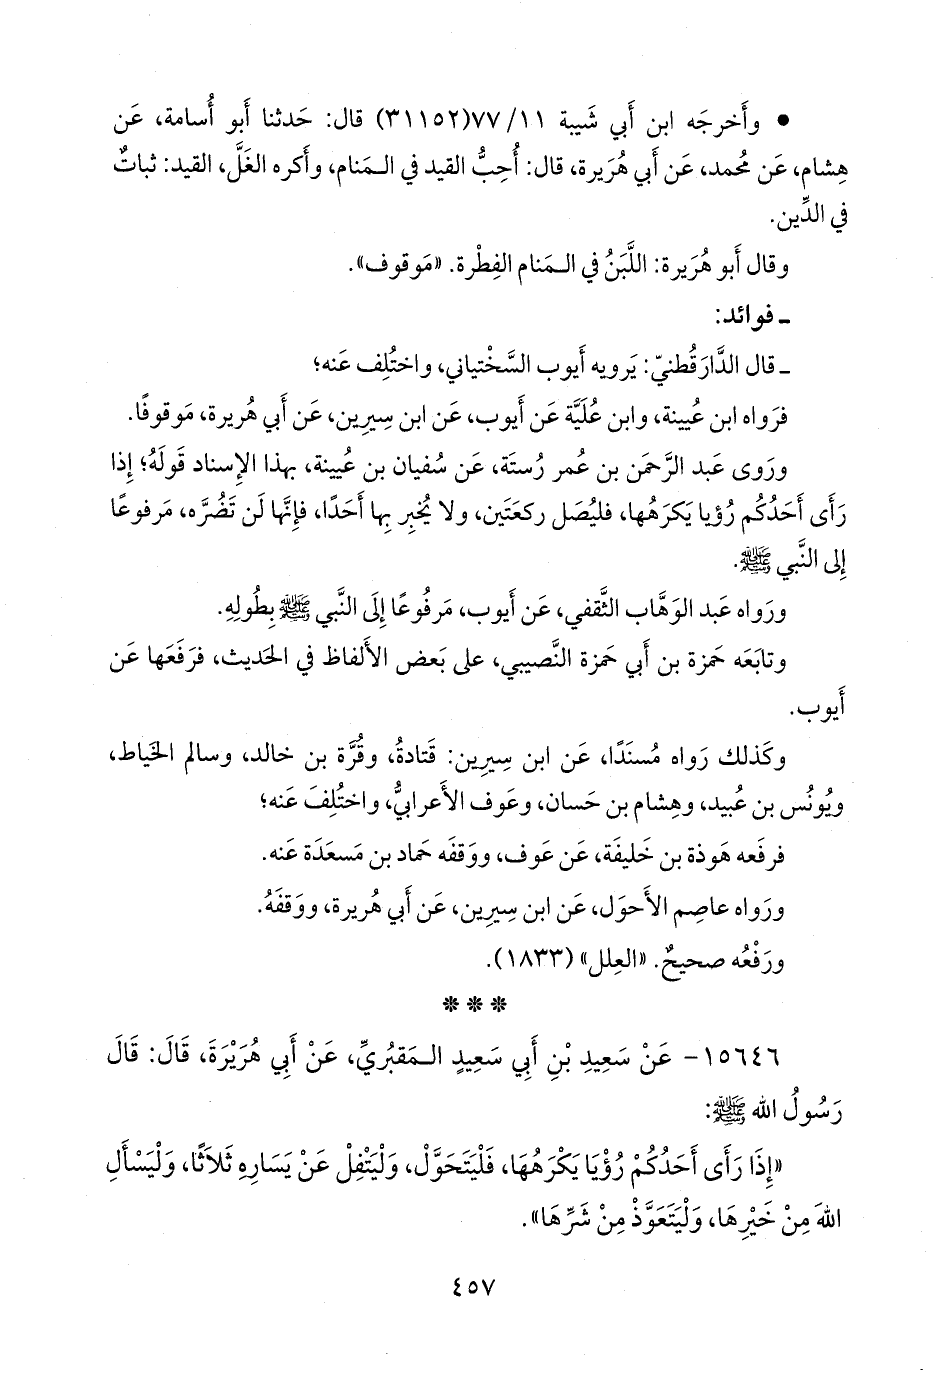 • وأَخرجَه ابن أَبي شَيبة ١١/ ٧٧(٣١١٥٢) قال: حَدثنا أَبو أُسامة، عَن
هِشام، عَن مُحمد، عَن أَبي هُرَيرة، قال: أُحِبُّ القيد في المَنام، وأَكره الغَلَّ، القيد: ثباتٌ
في الدِّين.
وقال أَبو هُرَيرة: اللَّبَنُ في المَنام الفِطْرة. «مَوقوف».
ـ فوائد:
ـ قال الدَّارَقُطنيّ: يَرويه أَيوب السَّخْتياني، واختُلِف عَنه؛
فرَواه ابن عُيينة، وابن عُلَيَّة عَن أَيوب، عَن ابن سِيرين، عَن أَبي هُريرة، مَوقوفًا.
ورَوى عَبد الرَّحمَن بن عُمر رُستَة، عَن سُفيان بن عُيينة، بهذا الإِسناد قَولَهُ؛ إِذا
رَأَى أَحَدُكُم رُؤيا يَكرَهُها، فليُصَل ركعَتَين، ولا يُخبِر بِها أَحَدًا، فإِنَّها لَن تَضُرَّه، مَرفوعًا
إِلى النَّبي ﷺ.
ورَواه عَبد الوَهَّاب الثَّقفي، عَن أَيوب، مَرفُوعًا إِلَى النَّبي ﷺ بِطُولِهِ.
وتابَعَه حَمزة بن أَبي حَمزة النَّصيبي، على بَعض الأَلفاظ في الحَديث، فرَفَعَها عَن
أَيوب.
وكَذلك رَواه مُسنَدًا، عَن ابن سِيرِين: قَتادةُ، وقُرَّة بن خالد، وسالم الخَياط،
ويُونُس بن عُبيد، وهِشام بن حَسان، وعَوف الأَعرابيُّ، واختُلِفَ عَنه؛
فرفَعه هَوذة بن خَليفَة، عَن عَوف، ووَقفَه حَماد بن مَسعَدَة عَنه.
ورَواه عاصِم الأَحوَل، عَن ابن سِيرِين، عَن أَبي هُريرة، ووَقفَهُ.
ورَفْعُه صحيحٌ. «العِلل» (١٨٣٣).
***
١٥٦٤٦- عَنْ سَعِيدِ بْنِ أَبِي سَعِيدٍ المَقبُريِّ، عَنْ أَبِي هُرَيْرَةَ، قَالَ: قَالَ
رَسُولُ الله ﷺ:
«إِذَا رَأَى أَحَدُكُمْ رُؤْيَا يَكْرَهُهَا، فَلْيَتَحَوَّلْ، وَلْيَتْفِلْ عَنْ يَسَارِهِ ثَلَاثًا، وَلْيَسْأَلِ
اللهَ مِنْ خَيْرِهَا، وَلْيَتَعَوَّذْ مِنْ شَرِّهَا».
٤٥٧